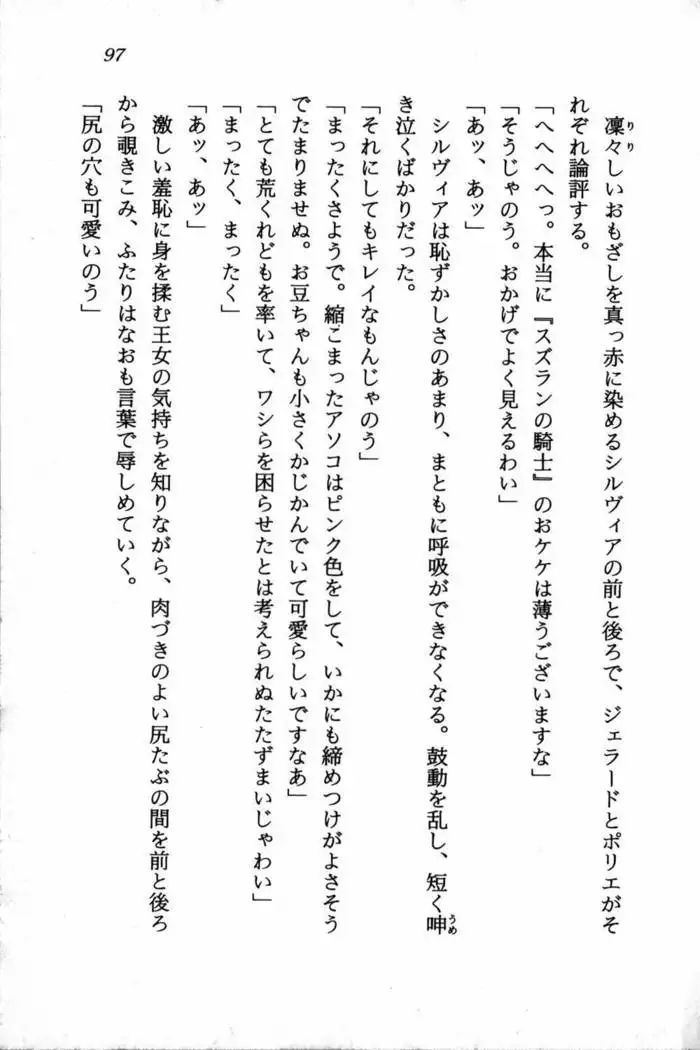 97
凜々しいおもざしを真っ赤に染めるシルヴィアの前と後ろで、ジェラードとポリエがそ
れぞれ論評する。
「へへへへっ。本当に『スズランの騎士』のおケケは薄うございますな」
「そうじゃのう。おかげでよく見えるわい」
「あッ、あッ」
シルヴィアは恥ずかしさのあまり、まともに呼吸ができなくなる。鼓動を乱し、短く呻
き泣くばかりだった。
「それにしてもキレイなもんじゃのう」
「まったくさようで。縮こまったアソコはピンク色をして、いかにも締めつけがよさそう
でたまりませぬ。お豆ちゃんも小さくかじかんでいて可愛らしいですなあ」
「とても荒くれどもを率いて、ワシらを困らせたとは考えられぬたたずまいじゃわい」
「まったく、まったく」
「あッ、あッ」
激しい羞恥に身を揉む王女の気持ちを知りながら、肉づきのよい尻たぶの間を前と後ろ
から覗きこみ、ふたりはなおも言葉で辱しめていく。
「尻の穴も可愛いのう」